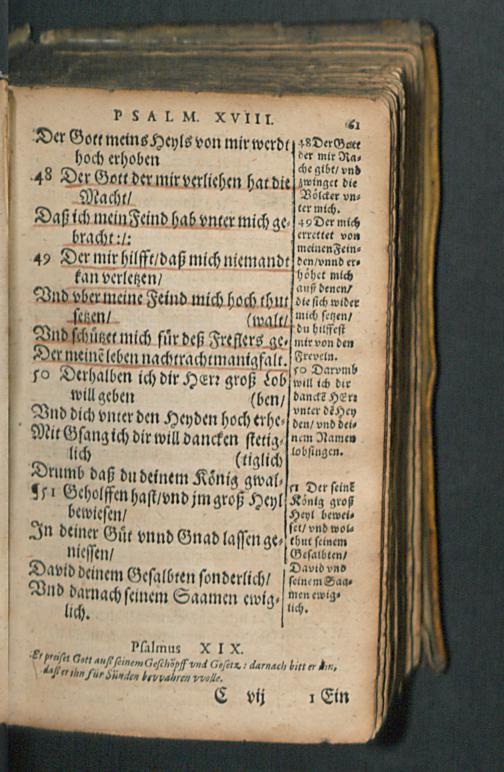 PSALM. XVIII.
61
Der Gott meins Heyls von mir werdt
hoch erhoben
48 Der Gott der mir verliehen hat die
Macht/
Daß ich mein Feind hab vnter mich ge-
bracht :/:
49 Der mir hilfft/daß mich niemandt
kan verletzen/
Vnd vber meine Feind mich hoch thut
setzen/ (walt/
Vnd schützet mich für deß Freflers ge-
Der meinē leben nachtracht manigfalt.
50 Derhalben ich dir HErr groß Lob
will geben (ben/
Vnd dich vnter den Heyden hoch erhe-
Mit Gsang ich dir will dancken stetig-
lich (tiglich
Drumb daß du deinem König gwal-
¶51 Geholffen hast/vnd jm groß Heyl
bewiesen/
In deiner Güt vnnd Gnad lassen ge-
niessen/
David deinem Gesalbten sonderlich/
Vnd darnach seinem Saamen ewig-
lich.
48 Der Gott
der mir Ra-
che gibt/ vnd
zwinget die
Völcker vn-
ter mich.
49 Der mich
errettet von
meinen Fein-
den/vnnd er-
höhet mich
auß denen/
die sich wider
mich setzen/
du hilffest
mir von den
Freveln.
50 Darvmb
will ich dir
danckē HErr
vnter dē Hey
den/ vnd dei-
nem Namen
lobsingen.
51 Der seinē
König groß
Heyl bewei-
set/ vnd wol
thut seinem
Gesalbten/
David vnd
seinem Saa-
men ewig-
lich.
Psalmus XIX.
Er preiset Gott auß seinem Geschöpff vnd Gesetz : darnach bitt er ihn,
daß er ihn für Sünden bevvahren vvolle.
C vij 1 Ein